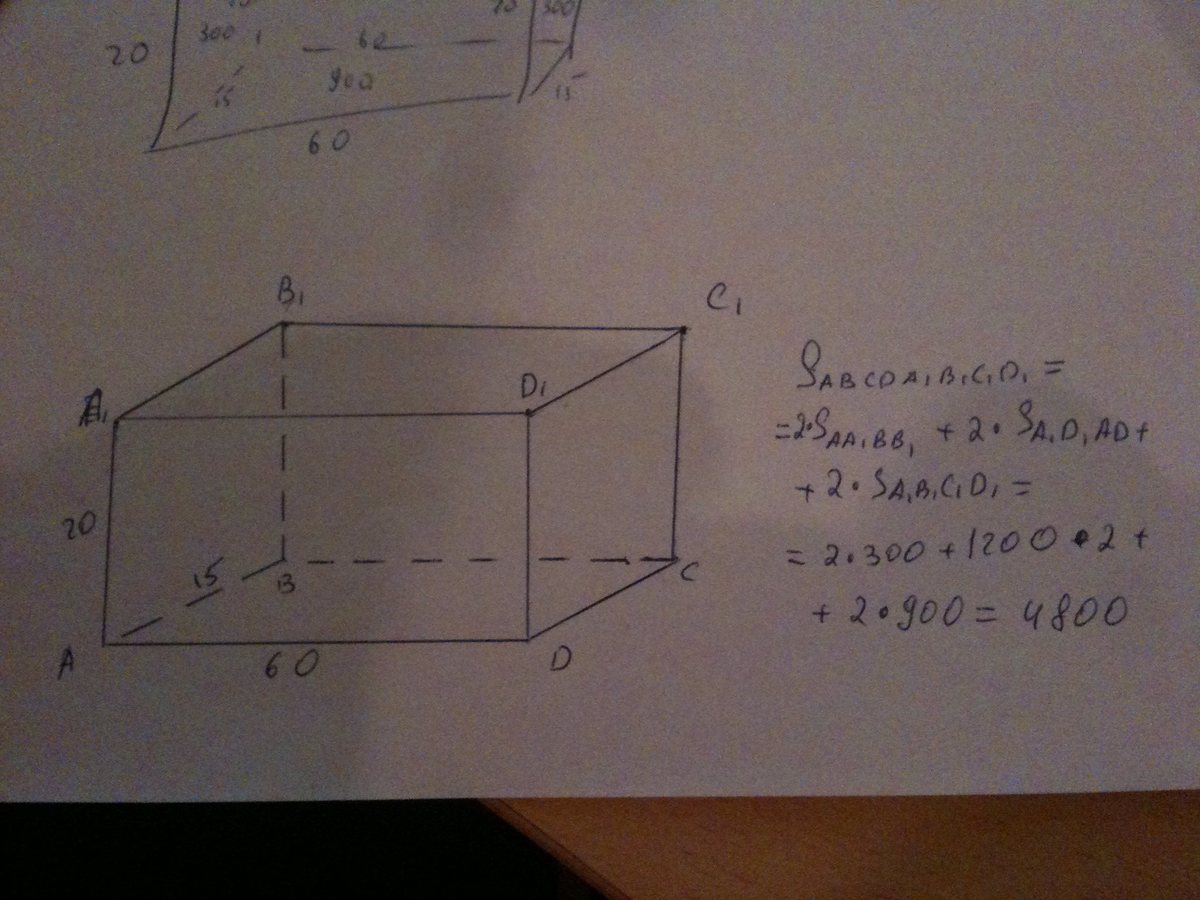 20 300 60 300
15 900 15
60
B₁ C₁
A₁ D₁
20
15 B C
A 60 D
S_ABCDA₁B₁C₁D₁ =
=2·S_AA₁BB₁ + 2·S_A₁D₁AD+
+ 2·S_A₁B₁C₁D₁ =
= 2·300 + 1200·2 +
+ 2·900 = 4800